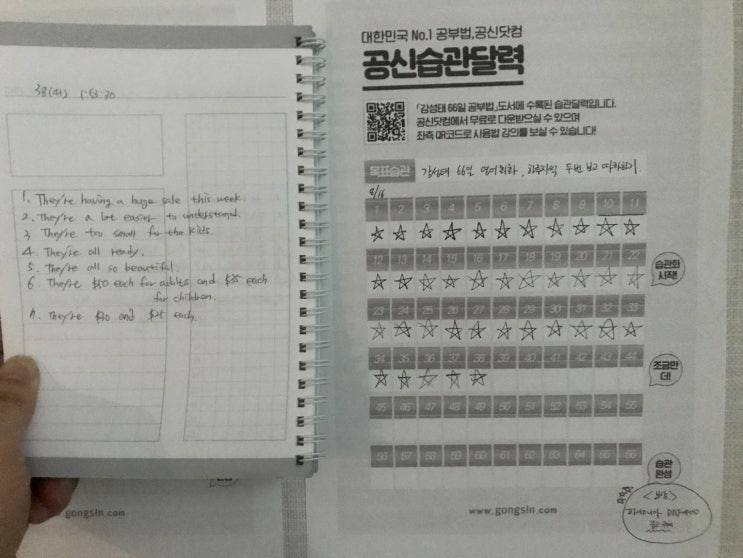 38(수)
1. They're having a huge sale this week.
2. They're a lot easier to understand.
3. They're too small for the kids.
4. They're all ready.
5. They're all so beautiful.
6. They're $20 each for adults and $35 each
for children.
7. They're $90 and $25 each.
대한민국 No.1 공부법, 공신닷컴
공신습관달력
『강성태 66일 공부법』도서에 수록된 습관달력입니다.
공신닷컴에서 무료로 다운받으실 수 있으며
좌측 QR코드로 사용법 강의를 보실 수 있습니다!
목표습관 강성태 66일 영어회화, 하루치씩 두번 보고 따라하기
8/16
1 2 3 4 5 6 7 8 9 10 11
12 13 14 15 16 17 18 19 20 21 22
습관화
시작!
23 24 25 26 27 28 29 30 31 32 33
34 35 36 37 38 39 40 41 42 43 44
조금만
더!
45 46 47 48 49 50 51 52 53 54 55
56 57 58 59 60 61 62 63 64 65 66
습관
완성
www.gongsin.com
www.gongsin.com